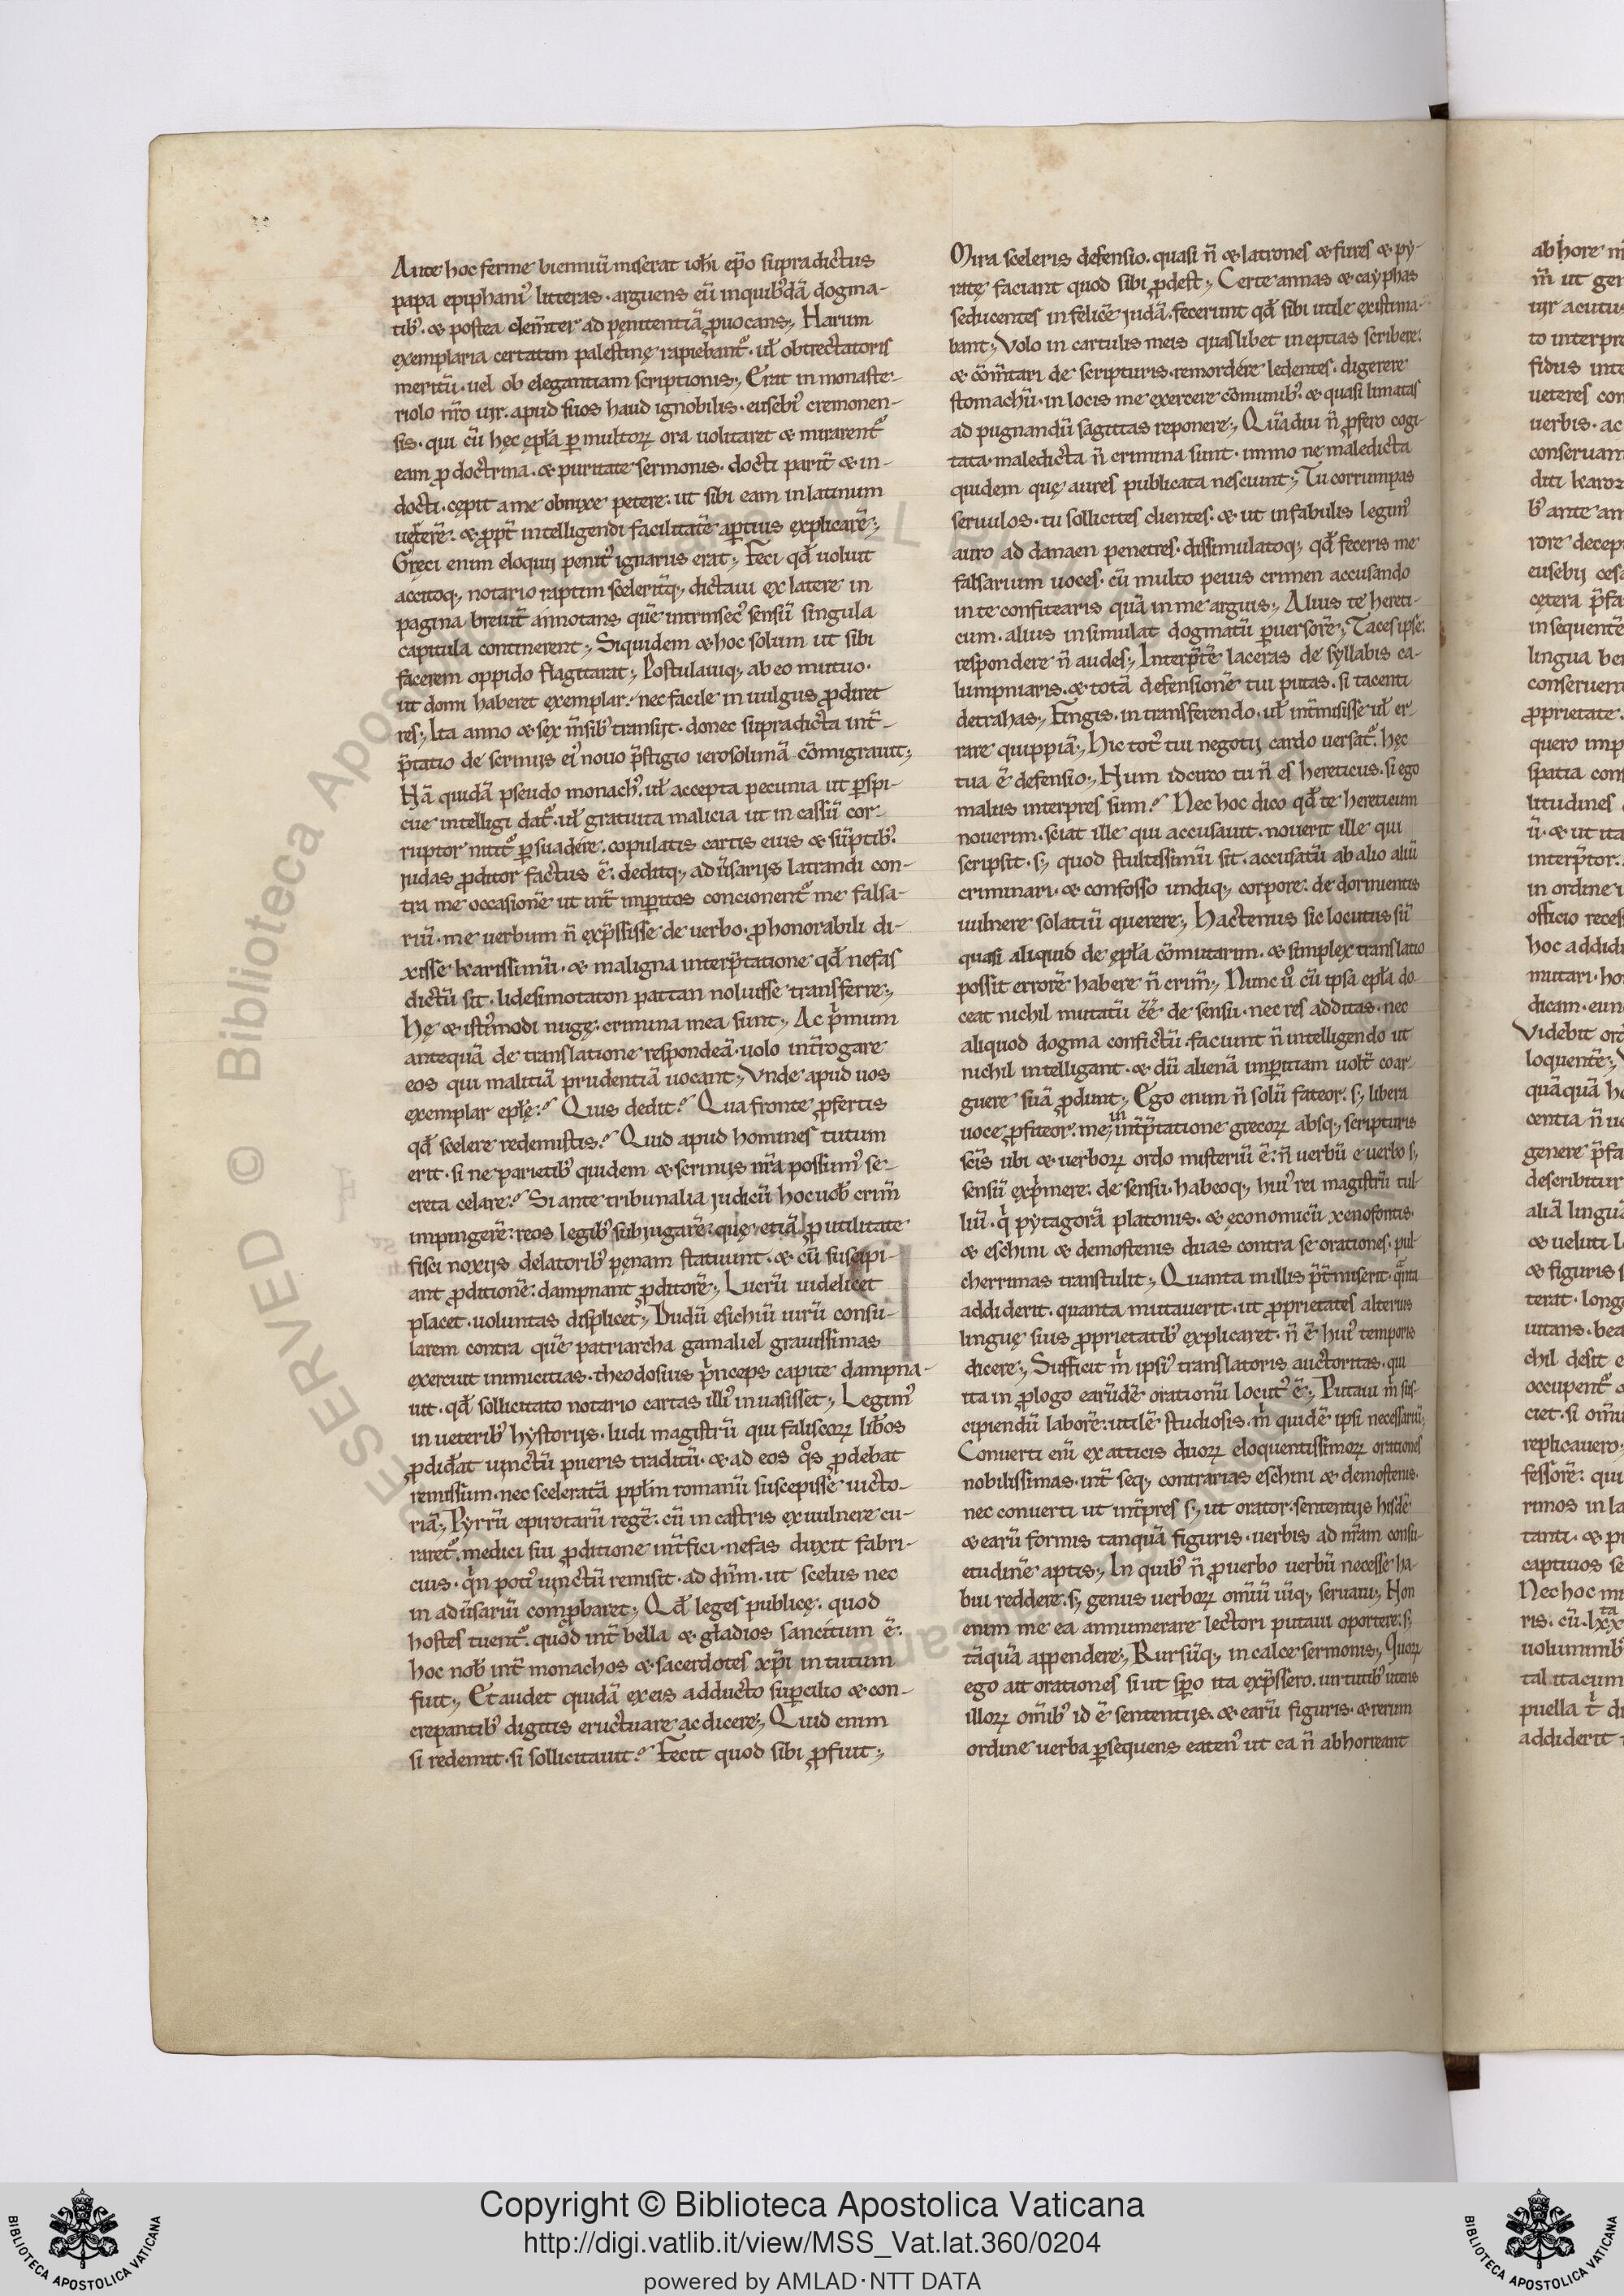 Ante hoc ferme bienniū miserat ioh̄i ep̄o supradictus
papa epiphani᾽ litteras · arguens eū in quib᾽dā dogma-
tib᾽ · & postea clem̄ter ad penitentiā ꝓuocans;, Harum
exemplaria certatim palestinę rapiebant᾽ · ul̄ obtrectatoris
meritū · uel ob elegantiam scriptionis;, Erat in monaste-
riolo nr̄o uir · apud suos haud ignobilis · eusebi᾽ cremonen-
sis · qui cū hęc ępl̄a ꝑ multoꝝ ora uolitaret & mirarent᾽
eam ꝓ doctrina · & puritate sermonis · docti parit̄ & in-
docti · cępit a me obnixe petere : ut sibi eam in latinum
uert̄erē · & ꝓpt̄ intelligendi facilitatē aꝑtius explicarē;,
Gręci enim eloquij penit᾽ ignarus erat;, Feci qd̄ uoluit
accitoq;, notario raptim sceleritq;, dictaui ex latere in
pagina breuit̄ annotans quē intrinsec᾽ sensū singula
capitula continerent;, Siquidem & hoc solum ut sibi
facerem oppido flagitarat;, Postulauiq;, ab eo mutuo ·
ut domi haberet exemplar · nec facile in uulgus ꝓdiret
res;, Ita anno & sex m̄sib᾽ transijt · donec supradicta int̄-
p̄tatio de scrinijs ei᾽ nouo p̄stigio ierosolimā cōmigrauit;,
Nā quidā pseudo monach᾽ · ul̄ accepta pecunia ut ꝑspi-
cue intelligi dat᾽ · ul̄ gratuita malicia ut in cassū cor-
ruptor nitit᾽ ꝑsuadere · copulatis cartis eius & sūptib᾽ ·
iudas ꝓditor factus ē : deditq;, adūsarijs latrandi con-
tra me occasionē ut int̄ imꝑitos concionent᾽ me falsa-
riū · me uerbum n̄ exp̄ssisse de uerbo · ꝓ honorabili di-
xisse karissimū · & maligna interp̄tatione qd̄ nefas
dictū sit · lidesimotaton pattan noluisse transferre;,
Hę & isti᾽modi nugę · crimina mea sunt;, Ac p̄mum
antequā de translatione respondeā · uolo int̄rogare
eos qui malitiā prudentiā uocant;, Vnde apud uos
exemplar epl̄ę? Quis dedit? Qua fronte ꝓfertis
qd̄ scelere redemistis? Quid apud homines tutum
erit · si ne parietib᾽ quidem & scrinijs nr̄a possum᾽ se-
creta celare? Si ante tribunalia iudicū hoc uob̄ crim̄
impingerē : reos legib᾽ subiugarē : quę etiā ꝓ utilitate
fisci noxijs delatorib᾽ pęnam statuunt · & cū suscipi-
ant ꝓditionē : dampnant ꝓditorē;, Lucrū uidelicet
placet · uoluntas displicet;, Dudū esichiū uirū consu-
larem contra quē patriarcha gamaliel grauissimas
exercuit inimicitias · theodosius p̄nceps capite dampna-
uit · qd̄ sollicitato notario cartas illi᾽ inuasisset;, Legim᾽
in ueterib᾽ hystorijs · ludi magistrū qui faliscoꝝ lib̄os
ꝓdid̄at uinctū pueris traditū · & ad eos q᾽s ꝓdebat
remissum · nec sceleratā ppl̄m romanū suscepisse uicto-
riā;, Pyrrū epirotarū regē : cū in castris ex uulnere cu-
raret᾽ · medici sui ꝓditione int̄fici · nefas duxit fabri-
cius · q̄n poti᾽ uinctū remisit · ad dn̄m · ut scelus nec
in adūsariū comꝓbaret;, Qd̄ leges publicę · quod
hostes tuent᾽ · quod int̄ bella & gladios sancitum ē :
hoc nob̄ int̄ monachos & sacerdotes xp̄i in tutum
fuit;, Et audet quidā ex eis adducto suꝑcilio & con-
crepantib᾽ digitis eructuare ac dicere;, Quid enim
si redemit · si sollicitauit? Fecit quod sibi ꝓfuit;,
Mira sceleris defensio · quasi n̄ & latrones & fures & py-
ratę faciant quod sibi ꝓdest;, Certe annas & cayphas
seducentes infelicē iudā · fecerunt qd̄ sibi utile existima-
bant;, Volo in cartulis meis quaslibet ineptias scribere :
& cōm̄tari de scripturis · remordere ledentes · digerere
stomachū · in locis me exercere cōmunib᾽ · & quasi limatas
ad pugnandū sagittas reponere;, Quādiu n̄ ꝓfero cogi-
tata · maledicta n̄ crimina sunt · immo ne maledicta
quidem quę aures publicata nesciunt;, Tu corrumpas
seruulos · tu sollicites clientes · & ut in fabulis legim᾽
auro ad danaen penetres · dissimulatoq;, qd̄ feceris me
falsarium uoces · cū multo peius crimen accusando
in te confitearis quā in me arguis;, Alius te hereti-
cum · alius insimulat dogmatū ꝑuersorē;, Taces ipse :
respondere n̄ audes;, Interp̄tē laceras de syllabis ca-
lumpniaris · & totā defensionē tui putas · si tacenti
detrahas;, Fingis · in transferendo · ul̄ int̄misisse ul̄ er-
rare quippiā;, Hic tot᾽ tui negotij cardo uersat᾽ · hęc
tua ē defensio;, Num idcirco tu n̄ es hereticus · si ego
malus interpres sum? Nec hoc dico qd̄ te hereticum
nouerim · sciat ille qui accusauit · nouerit ille qui
scripsit · s;, quod stultissimū sit · accusatū ab alio aliū
criminari · & confosso undiq;, corpore : de dormientis
uulnere solatiū querere;, Hactenus sic locutus sū
quasi aliquid de ępl̄a cōmutarim · & simplex translatio
possit errorē habere n̄ crim̄;, Nunc u᾽ cū ipsa epl̄a do-
ceat nichil mutatū ēē de sensu · nec res additas · nec
aliquod dogma confictū · faciunt n̄ intelligendo ut
nichil intelligant · & dū alienā imꝑitiam uolt̄ coar-
guere suā ꝓdunt;, Ego enim n̄ solū fateor : s;, libera
uoce ꝓfiteor · me;, in int̄p̄tatione grecoꝝ absq;, scripturis
sc̄is ubi & uerboꝝ ordo misteriū ē : n̄ uerbū e uerbo s;,
sensū exp̄mere : de sensu · habeoq;, hui᾽ rei magistrū tul-
liū · q̄ pytagorā platonis · & economicū xenofontis ·
& eschini & demostenis duas contra se orationes · pul-
cherrimas transtulit;, Quanta in illis p̄t̄miserit · q̄nta
addiderit · quanta mutauerit · ut ꝓprietates alterius
linguę suis ꝓprietatib᾽ explicaret · n̄ ē hui᾽ temporis
dicere;, Sufficit m̄ ipsi᾽ translatoris auctoritas · qui
ita in ꝓlogo earūdē orationū locut᾽ ē;, Putaui m̄ sus-
cipiendū laborē : utilē studiosis · m̄ quidē ipsi necessariū;,
Conuerti eni̅ ex atticis duoꝝ eloquentissimoꝝ orationes
nobilissimas · int̄ seq;, contrarias eschini & demostenis ·
nec conuerti ut int̄pres s;, ut orator · sententijs hisdē
& earū formis tanquā figuris · uerbis ad nr̄am consu-
etudinē aptis;, In quib᾽ n̄ ꝓ uerbo uerbū necesse ha-
bui reddere · s;, genus uerboꝝ om̄iū uīq;, seruaui;, Non
enim me ea annumerare lectori putaui oportere : s;,
tāquā appendere;, Rursūq;, in calce sermonis;, Quoꝝ
ego ait orationes si ut sp̄o ita exp̄ssero · uirtutib᾽ utens
illoꝝ om̄ib᾽ id ē sententijs · & earū figuris · & rerum
ordine uerba ꝑsequens eaten᾽ ut ea n̄ abhorreant
Copyright © Biblioteca Apostolica Vaticana
http://digi.vatlib.it/view/MSS_Vat.lat.360/0204
powered by AMLAD·NTT DATA